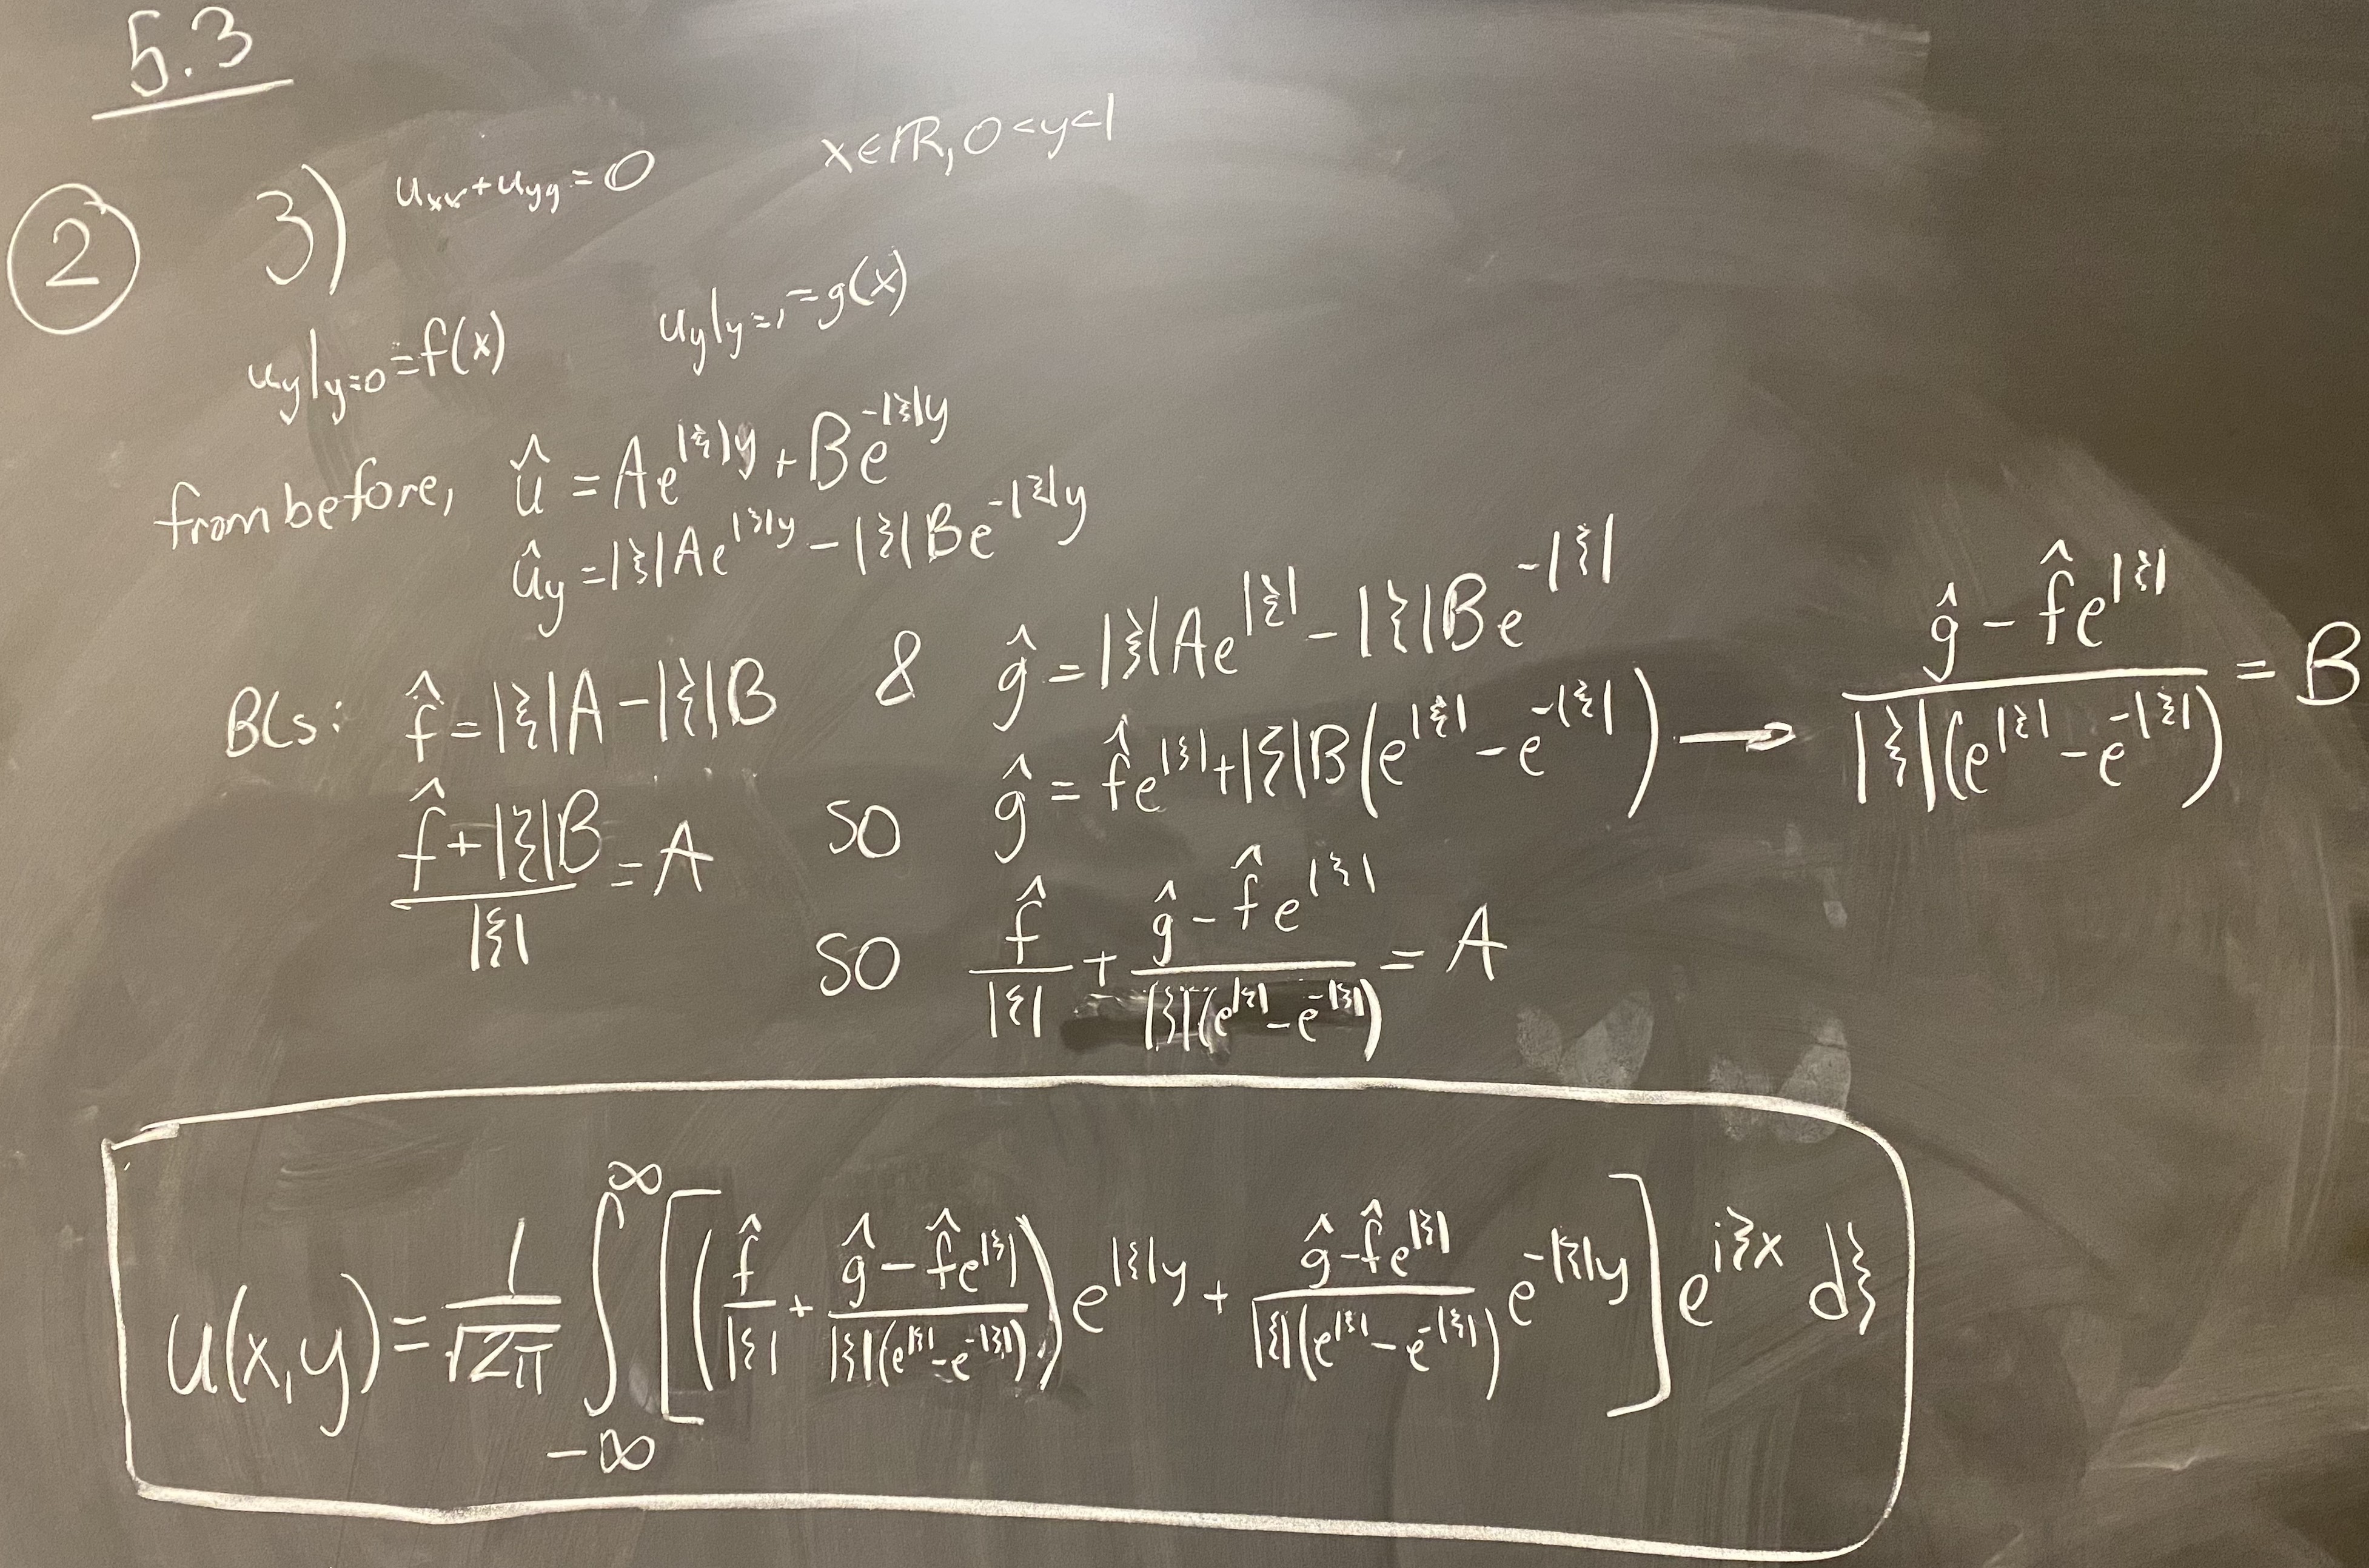 5.3
② 3) u_{xx}+u_{yy}=0 x∈ℝ, 0<y<1
u_y|_{y=0}=f(x) u_y|_{y=1}=g(x)
from before, û = Ae^{|ξ|y} + Be^{-|ξ|y}
û_y = |ξ|Ae^{|ξ|y} - |ξ|Be^{-|ξ|y}
BCs: f̂ = |ξ|A - |ξ|B & ĝ = |ξ|Ae^{|ξ|} - |ξ|Be^{-|ξ|}
(f̂ + |ξ|B)/|ξ| = A so ĝ = f̂e^{|ξ|} + |ξ|B(e^{|ξ|} - e^{-|ξ|}) → (ĝ - f̂e^{|ξ|})/(|ξ|(e^{|ξ|} - e^{-|ξ|})) = B
so f̂/|ξ| + (ĝ - f̂e^{|ξ|})/(|ξ|(e^{|ξ|} - e^{-|ξ|})) = A
u(x,y) = 1/√2π ∫_{-∞}^{∞} [(f̂/|ξ| + (ĝ - f̂e^{|ξ|})/(|ξ|(e^{|ξ|} - e^{-|ξ|}))) e^{|ξ|y} + (ĝ - f̂e^{|ξ|})/(|ξ|(e^{|ξ|} - e^{-|ξ|})) e^{-|ξ|y}] e^{iξx} dξ